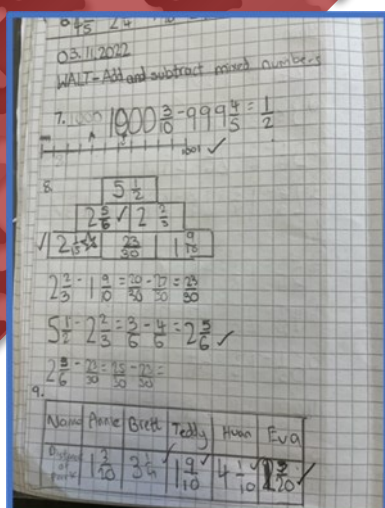 03.11.2022
WALT-Add and subtract mixed numbers
7. 1000 3/10 - 999 4/5 = 1/2
1001 ✓
8.
5 1/2
2 5/6 ✓ 2 2/3
✓ 2 1/15 23/30 1 9/10
2 2/3 - 1 9/10 = 20/30 - 27/30 = 23/30
5 1/2 - 2 2/3 = 3/6 - 4/6 = 2 5/6 ✓
2 5/6 - 23/30 = 25/30 - 23/30 =
9.
Name Annie Brett Teddy Huan Eva
Distance 1 3/10 3 1/4 1 9/10 ✓ 4 1/10 ✓ ✓